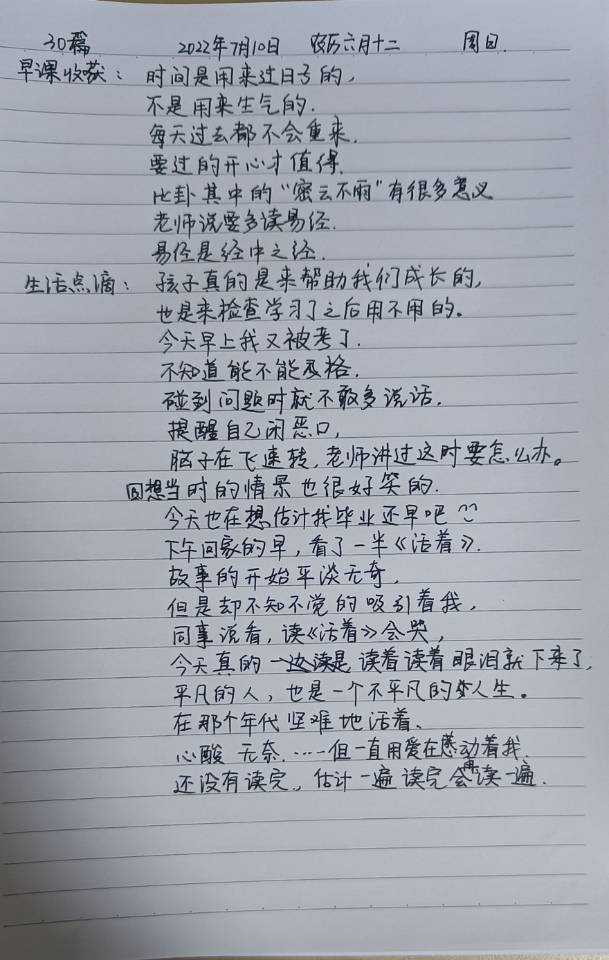 30篇 2022年7月10日 农历六月十二 周日.
早课收获: 时间是用来过日子的,
不是用来生气的.
每天过去都不会重来.
要过的开心才值得.
比卦其中的“密云不雨”有很多意义
老师说要多读易经.
易经是经中之经.
生活点滴: 孩子真的是来帮助我们成长的,
也是来检查学习了之后用不用的。
今天早上我又被考了.
不知道能不能及格.
碰到问题时就不敢多说话.
提醒自己闭恶口,
脑子在飞速转,老师讲过这时要怎么办。
回想当时的情景也很好笑的.
今天也在想估计我毕业还早吧
下午回家的早,看了一半《活着》.
故事的开始平淡无奇,
但是却不知不觉的吸引着我,
同事说看,读《活着》会哭,
今天真的 读着读着眼泪就下来了,
平凡的人,也是一个不平凡的人生。
在那个年代坚难地活着、
心酸 无奈.……但一直用爱在感动着我.
还没有读完,估计一遍读完会再读一遍.